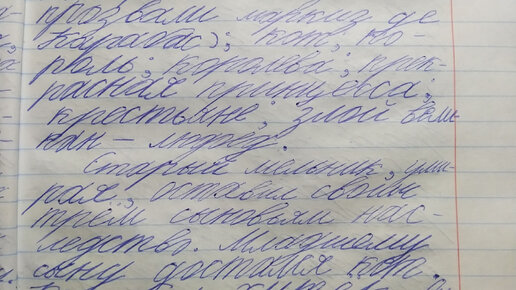 прозвали маркиз де
Карабас); кот, ко-
роль; королева; прек-
расная принцесса;
крестьяне; злой вели-
кан – людоед.
Старый мельник, уми-
рая, оставил своим
трём сыновьям нас-
ледство. Младшему
сыну достался кот.